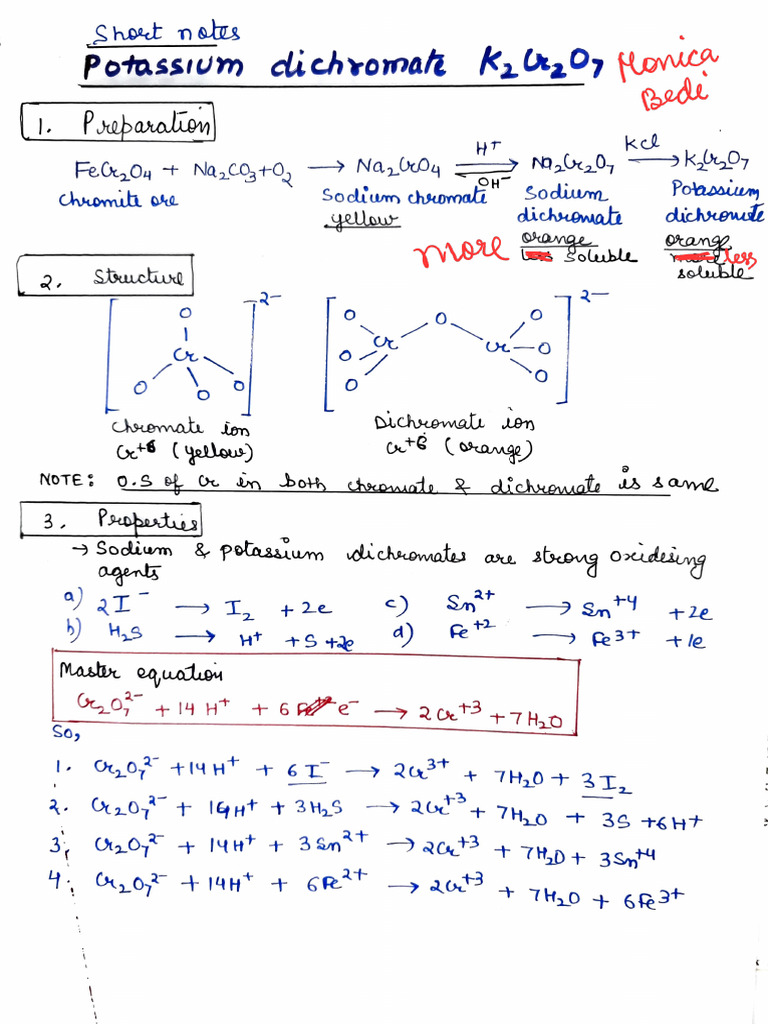 Short notes
Potassium dichromate K₂Cr₂O₇ Monica
Bedi
1. Preparation
FeCr₂O₄ + Na₂CO₃ + O₂ → Na₂CrO₄ H⁺ ⇌ OH⁻ Na₂Cr₂O₇ KCl → K₂Cr₂O₇
Chromite ore Sodium chromate Sodium Potassium
yellow dichromate dichromate
orange orange
more soluble less
soluble
2. Structure
[O O O O Cr]²⁻ [O O O Cr O Cr O O O]²⁻
Chromate ion Dichromate ion
Cr⁺⁶ (yellow) Cr⁺⁶ (orange)
NOTE: O.S of Cr in both chromate & dichromate is same
3. Properties
→ Sodium & potassium dichromates are strong oxidesing
agents
a) 2I⁻ → I₂ + 2e c) Sn²⁺ → Sn⁺⁴ + 2e
b) H₂S → H⁺ + S + 2e d) Fe⁺² → Fe³⁺ + 1e
Master equation
Cr₂O₇²⁻ + 14H⁺ + 6 e⁻ → 2Cr⁺³ + 7H₂O
So,
1. Cr₂O₇²⁻ + 14H⁺ + 6I⁻ → 2Cr³⁺ + 7H₂O + 3I₂
2. Cr₂O₇²⁻ + 14H⁺ + 3H₂S → 2Cr⁺³ + 7H₂O + 3S + 6H⁺
3. Cr₂O₇²⁻ + 14H⁺ + 3Sn²⁺ → 2Cr⁺³ + 7H₂O + 3Sn⁺⁴
4. Cr₂O₇²⁻ + 14H⁺ + 6Fe²⁺ → 2Cr⁺³ + 7H₂O + 6Fe³⁺